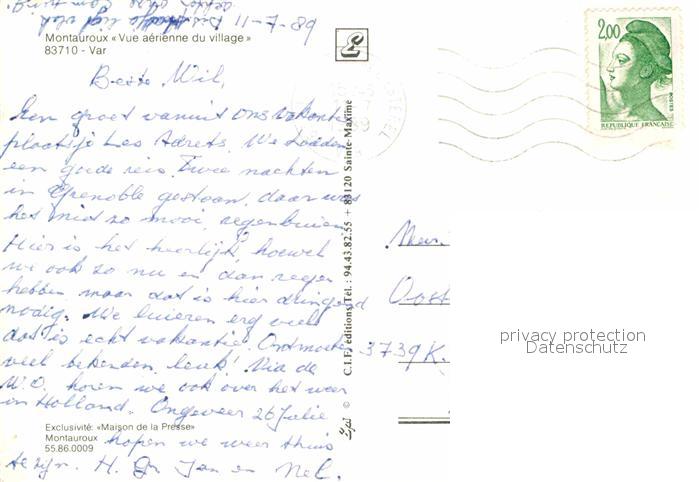 11-7-89
Montauroux «Vue aérienne du village»
83710 - Var
Beste Wil,
Een groet vanuit ons vakantie
plaatsje Les Adrets. We hadden
een goede reis. Twee nachten
in Grenoble gestaan, daar was
het niet zo mooi, regenbuien.
Hier is het heerlijk, hoewel
we ook zo nu en dan regen
hebben maar dat is hier dringend
nodig. We luieren erg veel
dat is echt vakantie. Ontmoeten
veel bekenden, leuk! Via de
W.O. horen we ook over het weer
in Holland. Ongeveer 26 Julie
hopen we weer thuis
te zijn. H. Gr. Jan en Nel.
Exclusivité: «Maison de la Presse»
Montauroux
55.86.0009
C.I.F. éditions Tél.: 94.43.82.55 + 83120 Sainte-Maxime
©
2,00
POSTES
REPUBLIQUE FRANÇAISE
Mevr.
Oost
3739 K.
privacy protection
Datenschutz